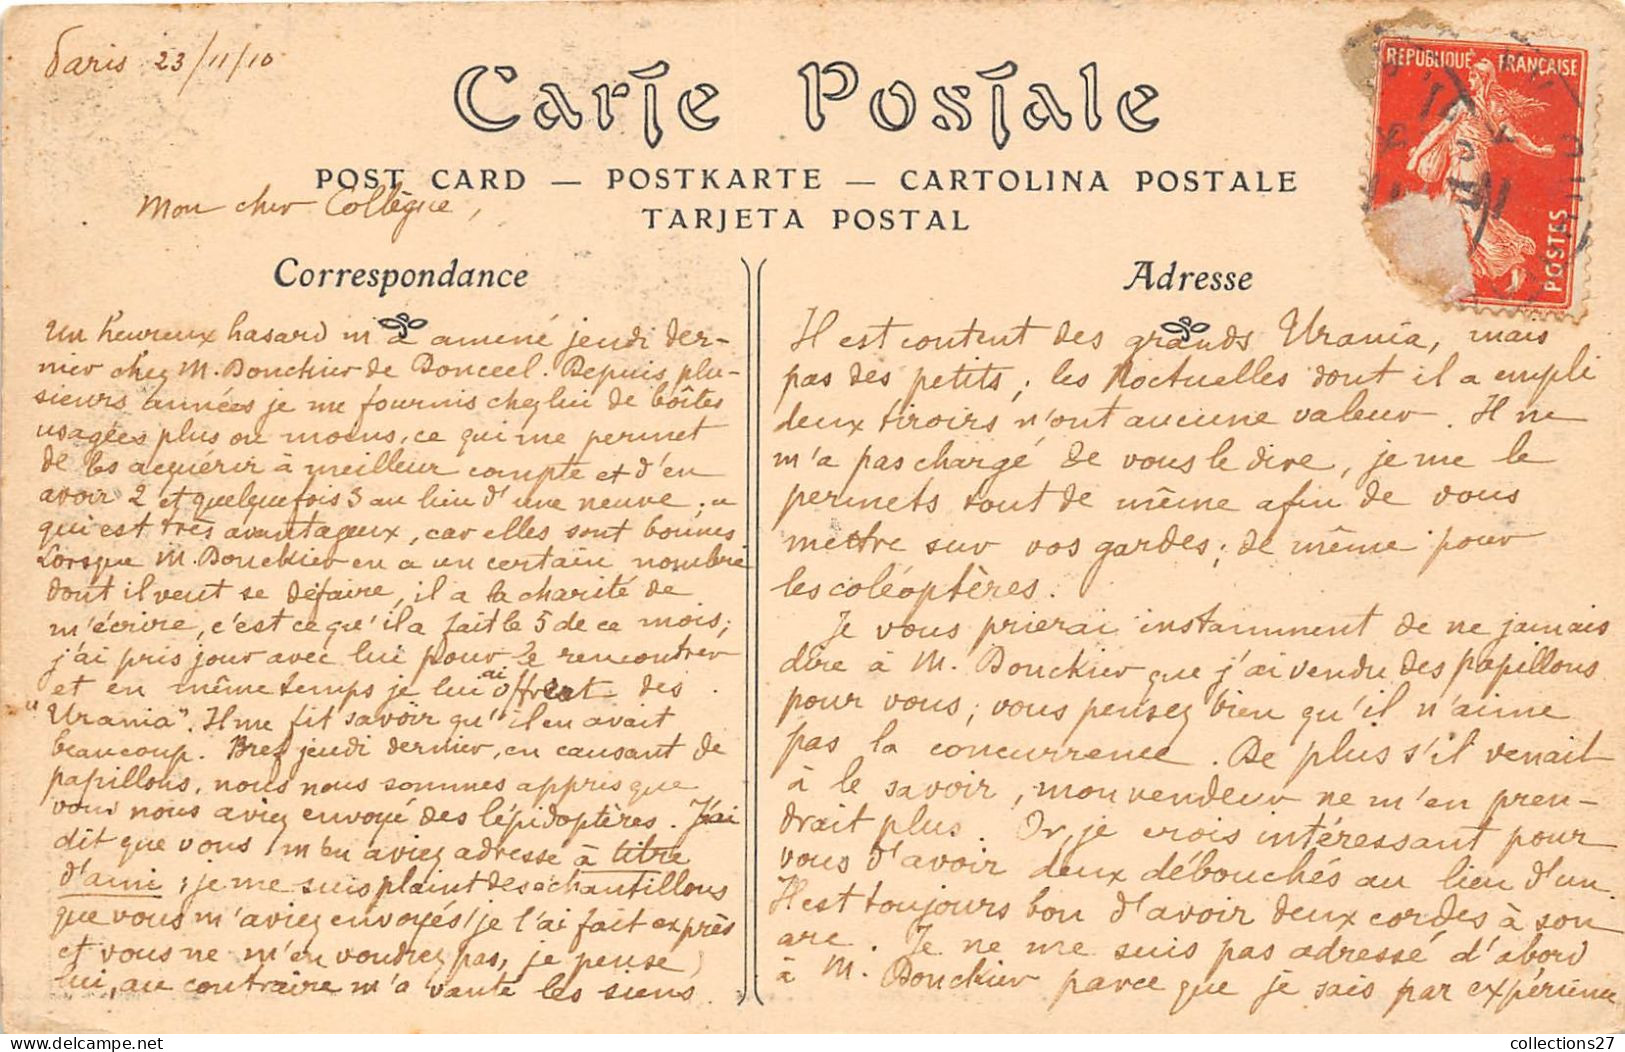 Paris 23/11/10
Carte Postale
POST CARD — POSTKARTE — CARTOLINA POSTALE
TARJETA POSTAL
REPUBLIQUE FRANÇAISE
POSTES
Mon cher Collègue,
Correspondance
Un heureux hasard m'a amené jeudi der-
nier chez M. Donckier de Donceel. Depuis plu-
sieurs années je me fournis chez lui de boîtes
usagées plus ou moins, ce qui me permet
de les acquérir à meilleur compte et d'en
avoir 2 et quelquefois 3 au lieu d'une neuve ;
qui est très avantageux, car elles sont bonnes
Lorsque M. Donckier en a un certain nombre
dont il veut se défaire, il a la charité de
m'écrire, c'est ce qu'il a fait le 5 de ce mois ;
j'ai pris jour avec lui pour le rencontrer
et en même temps je lui ai offert des
"Urania". Il me fit savoir qu'il en avait
beaucoup. Bref jeudi dernier, en causant de
papillons, nous nous sommes appris que
vous nous aviez envoyé des lépidoptères. J'ai
dit que vous m'en aviez adressé à titre
d'ami ; je me suis plaint des échantillons
que vous m'aviez envoyés (je l'ai fait exprès
et vous ne m'en voudrez pas, je pense)
lui, au contraire m'a vanté les siens.
Adresse
Il est content des grands Urania, mais
pas des petits ; les Noctuelles dont il a empli
deux tiroirs n'ont aucune valeur. Il ne
m'a pas chargé de vous le dire, je me le
permets tout de même afin de vous
mettre sur vos gardes ; de même pour
les coléoptères.
Je vous prierai instamment de ne jamais
dire à M. Donckier que j'ai vendu des papillons
pour vous ; vous pensez bien qu'il n'aime
pas la concurrence. De plus s'il venait
à le savoir, mon vendeur ne m'en pren-
drait plus. Or, je crois intéressant pour
vous d'avoir deux débouchés au lieu d'un
Il est toujours bon d'avoir deux cordes à son
arc. Je ne me suis pas adressé d'abord
à M. Donckier parce que je sais par expérience
collections27